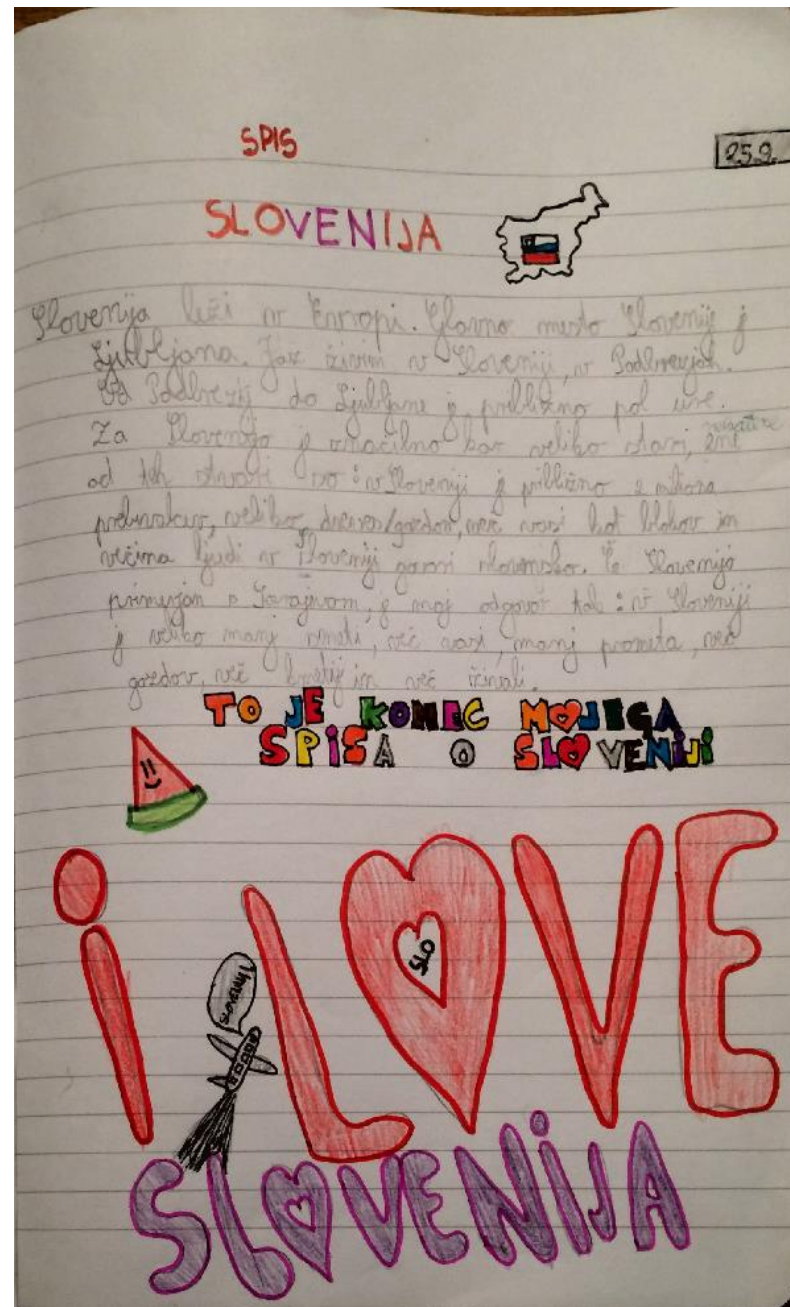 SPIS
25.9.
SLOVENIJA
Slovenija leži v Evropi. Glavno mesto Slovenije je
Ljubljana. Jaz živim v Sloveniji, v Podbrezjah.
Od Podbrezij do Ljubljane je približno pol ure.
Za Slovenijo je značilno kar veliko stvari, ene
od teh stvari so: v Sloveniji je približno 2 miliona
prebivalcev, veliko dreves/gozdov, več vasi kot blokov in
večina ljudi v Sloveniji govori slovensko. Če Slovenijo
primerjam s Sarajevom, je moj odgovor tak: v Sloveniji
je veliko manj smeti, več vasi, manj prometa, več
gozdov, več kmetij in več živali.
TO JE KONEC MOJEGA
SPISA O SLOVENIJI
i LOVE
SLO
SLOVENIJA